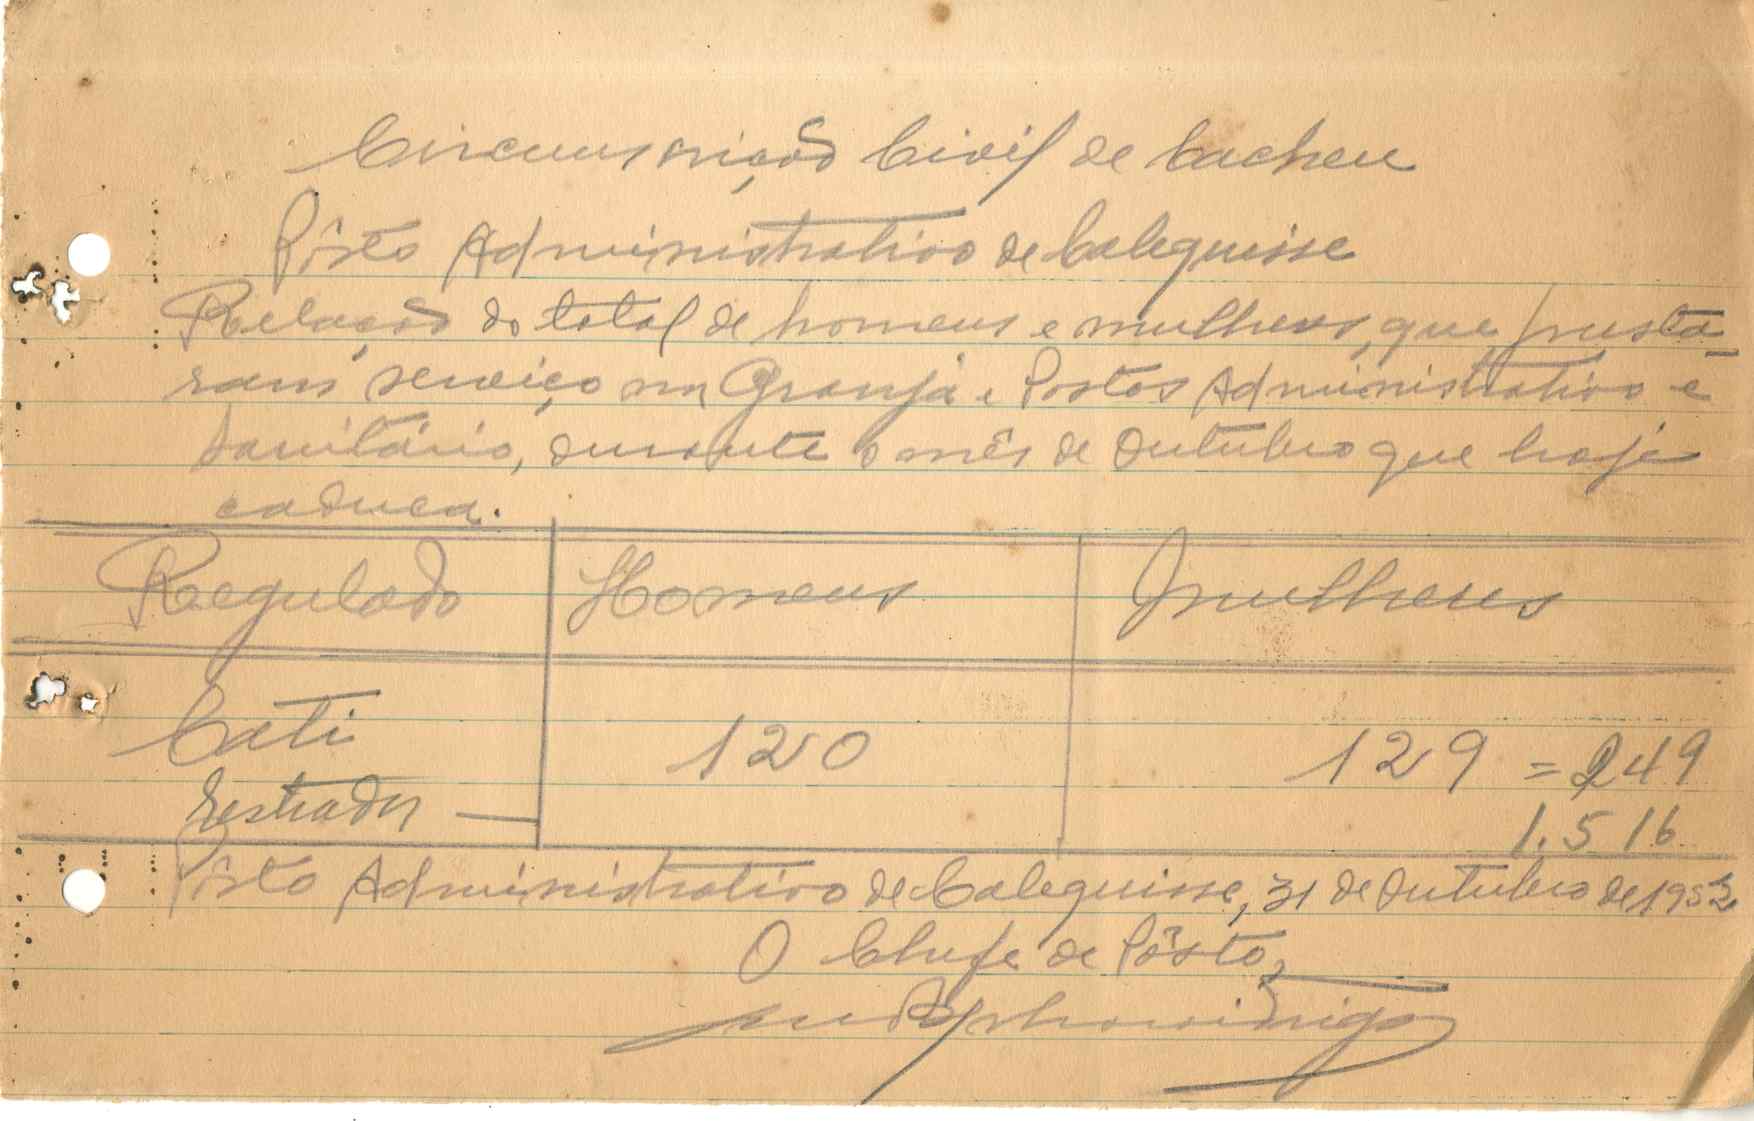 Circunscrição Civil de Cacheu
Pôsto Administrativo de Calequisse
Relação do total de homens e mulheres, que presta-
ram serviço na Granja e Postos Administrativo e
Sanitário, durante o mês de Outubro que hoje
caduca.
Regulado Homens Mulheres
Cati 120 129 = 249
Estradas — 1.516
Pôsto Administrativo de Calequisse, 31 de Outubro de 1952
O Chefe de Pôsto,